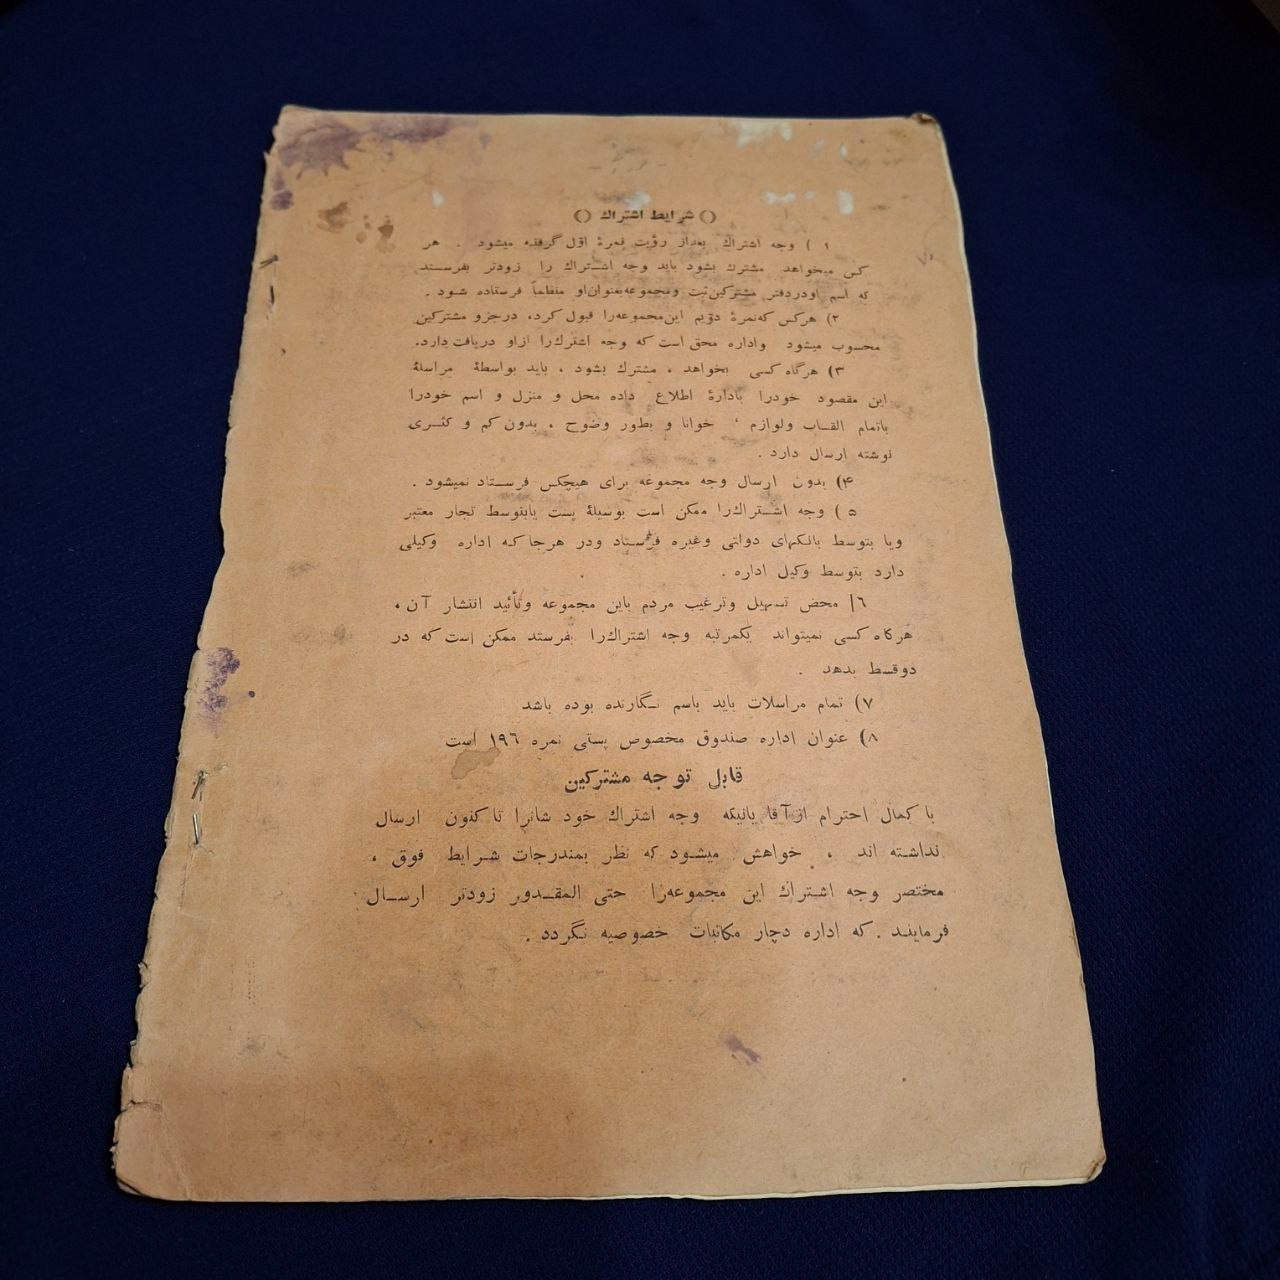 () شرایط اشتراك ()
۱ ) وجه اشتراك بعداز رؤیت نمرهٔ اوّل گرفته میشود . هر
کس میخواهد مشترك بشود باید وجه اشــتراك را زودتر بفرســتد
که اسم اودردفتر مشترکین ثبت ومجموعه بعنوان‌او منظماً فرستاده شود .
۲) هرکس که‌نمرهٔ دوّیم این‌مجموعه‌را قبول کرد، درجزو مشترکین
محسوب میشود واداره محق است که وجه اشترك‌را ازاو دریافت دارد.
۳) هرگاه کسی بخواهد ، مشترك بشود ، باید بواسطهٔ مراسلهٔ
این مقصود خودرا بادارهٔ اطلاع داده محل و منزل و اسم خودرا
باتمام القــاب ولوازم ، خوانا و بطور وضوح ، بدون کم و کثــری
نوشته ارسال دارد .
۴) بدون ارسال وجه مجموعه برای هیچکس فرســتاد نمیشود .
۵ ) وجه اشــتراك‌را ممکن است بوسیلهٔ پست یابتوسط تجار معتبر
ویا بتوسط بانکهای دولتی وغیره فرستاد ودر هرجا کــه اداره وکیلی
دارد بتوسط وکیل اداره .
٦) محض تسهیل وترغیب مردم باین مجموعه وتأئید انتشار آن ،
هرکاه کسی نمیتواند یکمرتبه وجه اشتراك‌را بفرستد ممکن است که در
دوقسط بدهد .
۷) تمام مراسلات باید باسم نــگارنده بوده باشد
۸) عنوان اداره صندوق مخصوص پستی نمره ۱۹٦ است
قابل توجه مشترکین
با کمال احترام از آقا یانیکه وجه اشتراك خود شانرا تا کنون ارسال
نداشــته اند ، خواهش میشــود که نظر بمندرجات شــرایط فوق ،
مختصر وجه اشــتراك این مجموعه‌را حتی المقــدور زودتر ارســال
فرمایند . که اداره دچار مکاتبات خصوصیه نگردد .